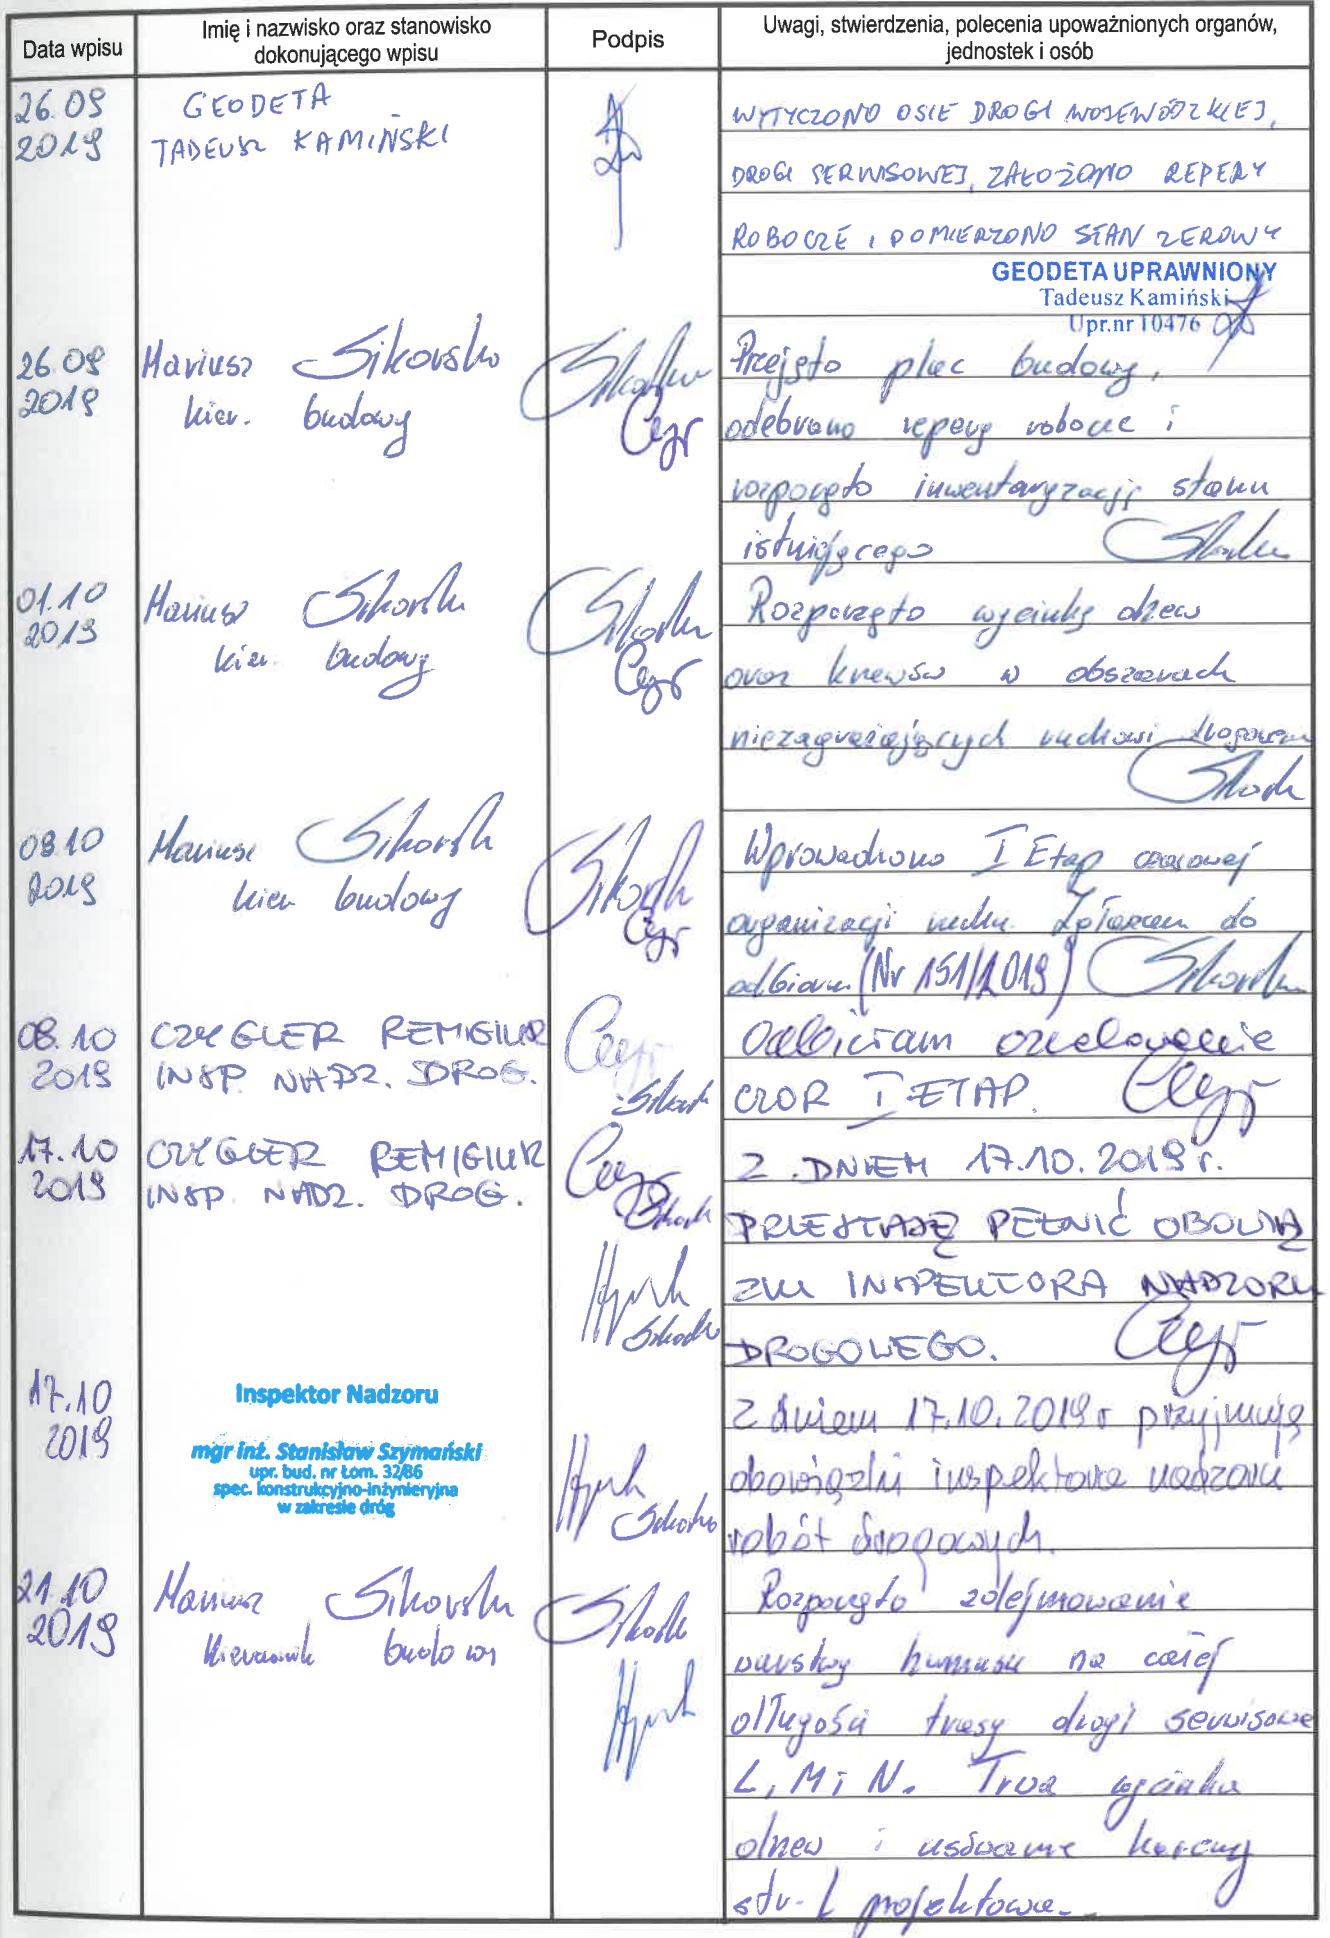 Data wpisu
Imię i nazwisko oraz stanowisko
dokonującego wpisu
Podpis
Uwagi, stwierdzenia, polecenia upoważnionych organów,
jednostek i osób
26.09
2019
GEODETA
TADEUSZ KAMIŃSKI
WYTYCZONO OSIE DROGI WOJEWÓDZKIEJ,
DROGI SERWISOWEJ, ZAŁOŻONO REPERY
ROBOCZE I POMIERZONO STAN ZEROWY
GEODETA UPRAWNIONY
Tadeusz Kamiński
Upr.nr 10476
26.09
2019
Mariusz Sikorski
kier. budowy
Przejęto plac budowy,
odebrano repery robocze i
rozpoczęto inwentaryzację stanu
istniejącego
01.10
2019
Mariusz Sikorski
kier. budowy
Rozpoczęto wycinkę drzew
oraz krzewów w obszarach
niezagrażających ruchowi drogowemu
09.10
2019
Mariusz Sikorski
kier budowy
Wprowadzono I Etap czasowej
organizacji ruchu. Zgłaszam do
odbioru (Nr 151/2019)
08.10
2019
CZYGLER REMIGIUSZ
INSP. NADZ. DROG.
Odbieram oznakowanie
CZOR I ETAP.
17.10
2019
CZYGLER REMIGIUSZ
INSP. NADZ. DROG.
Z DNIEM 17.10.2019 r.
PRZESTAJĘ PEŁNIĆ OBOWIĄ
ZKI INSPEKTORA NADZORU
DROGOWEGO.
17.10
2019
Inspektor Nadzoru
mgr inż. Stanisław Szymański
upr. bud. nr Łom. 32/86
spec. konstrukcyjno-inżynieryjna
w zakresie dróg
Z dniem 17.10.2019 r przyjmuję
obowiązki inspektora nadzoru
robót drogowych.
21.10
2019
Mariusz Sikorski
Kierownik budowy
Rozpoczęto zdejmowanie
warstwy humusu na całej
długości trasy drogi serwisowe
L, M i N. Trwa wycinka
drzew i usówanie karczy
str. L projektowa.